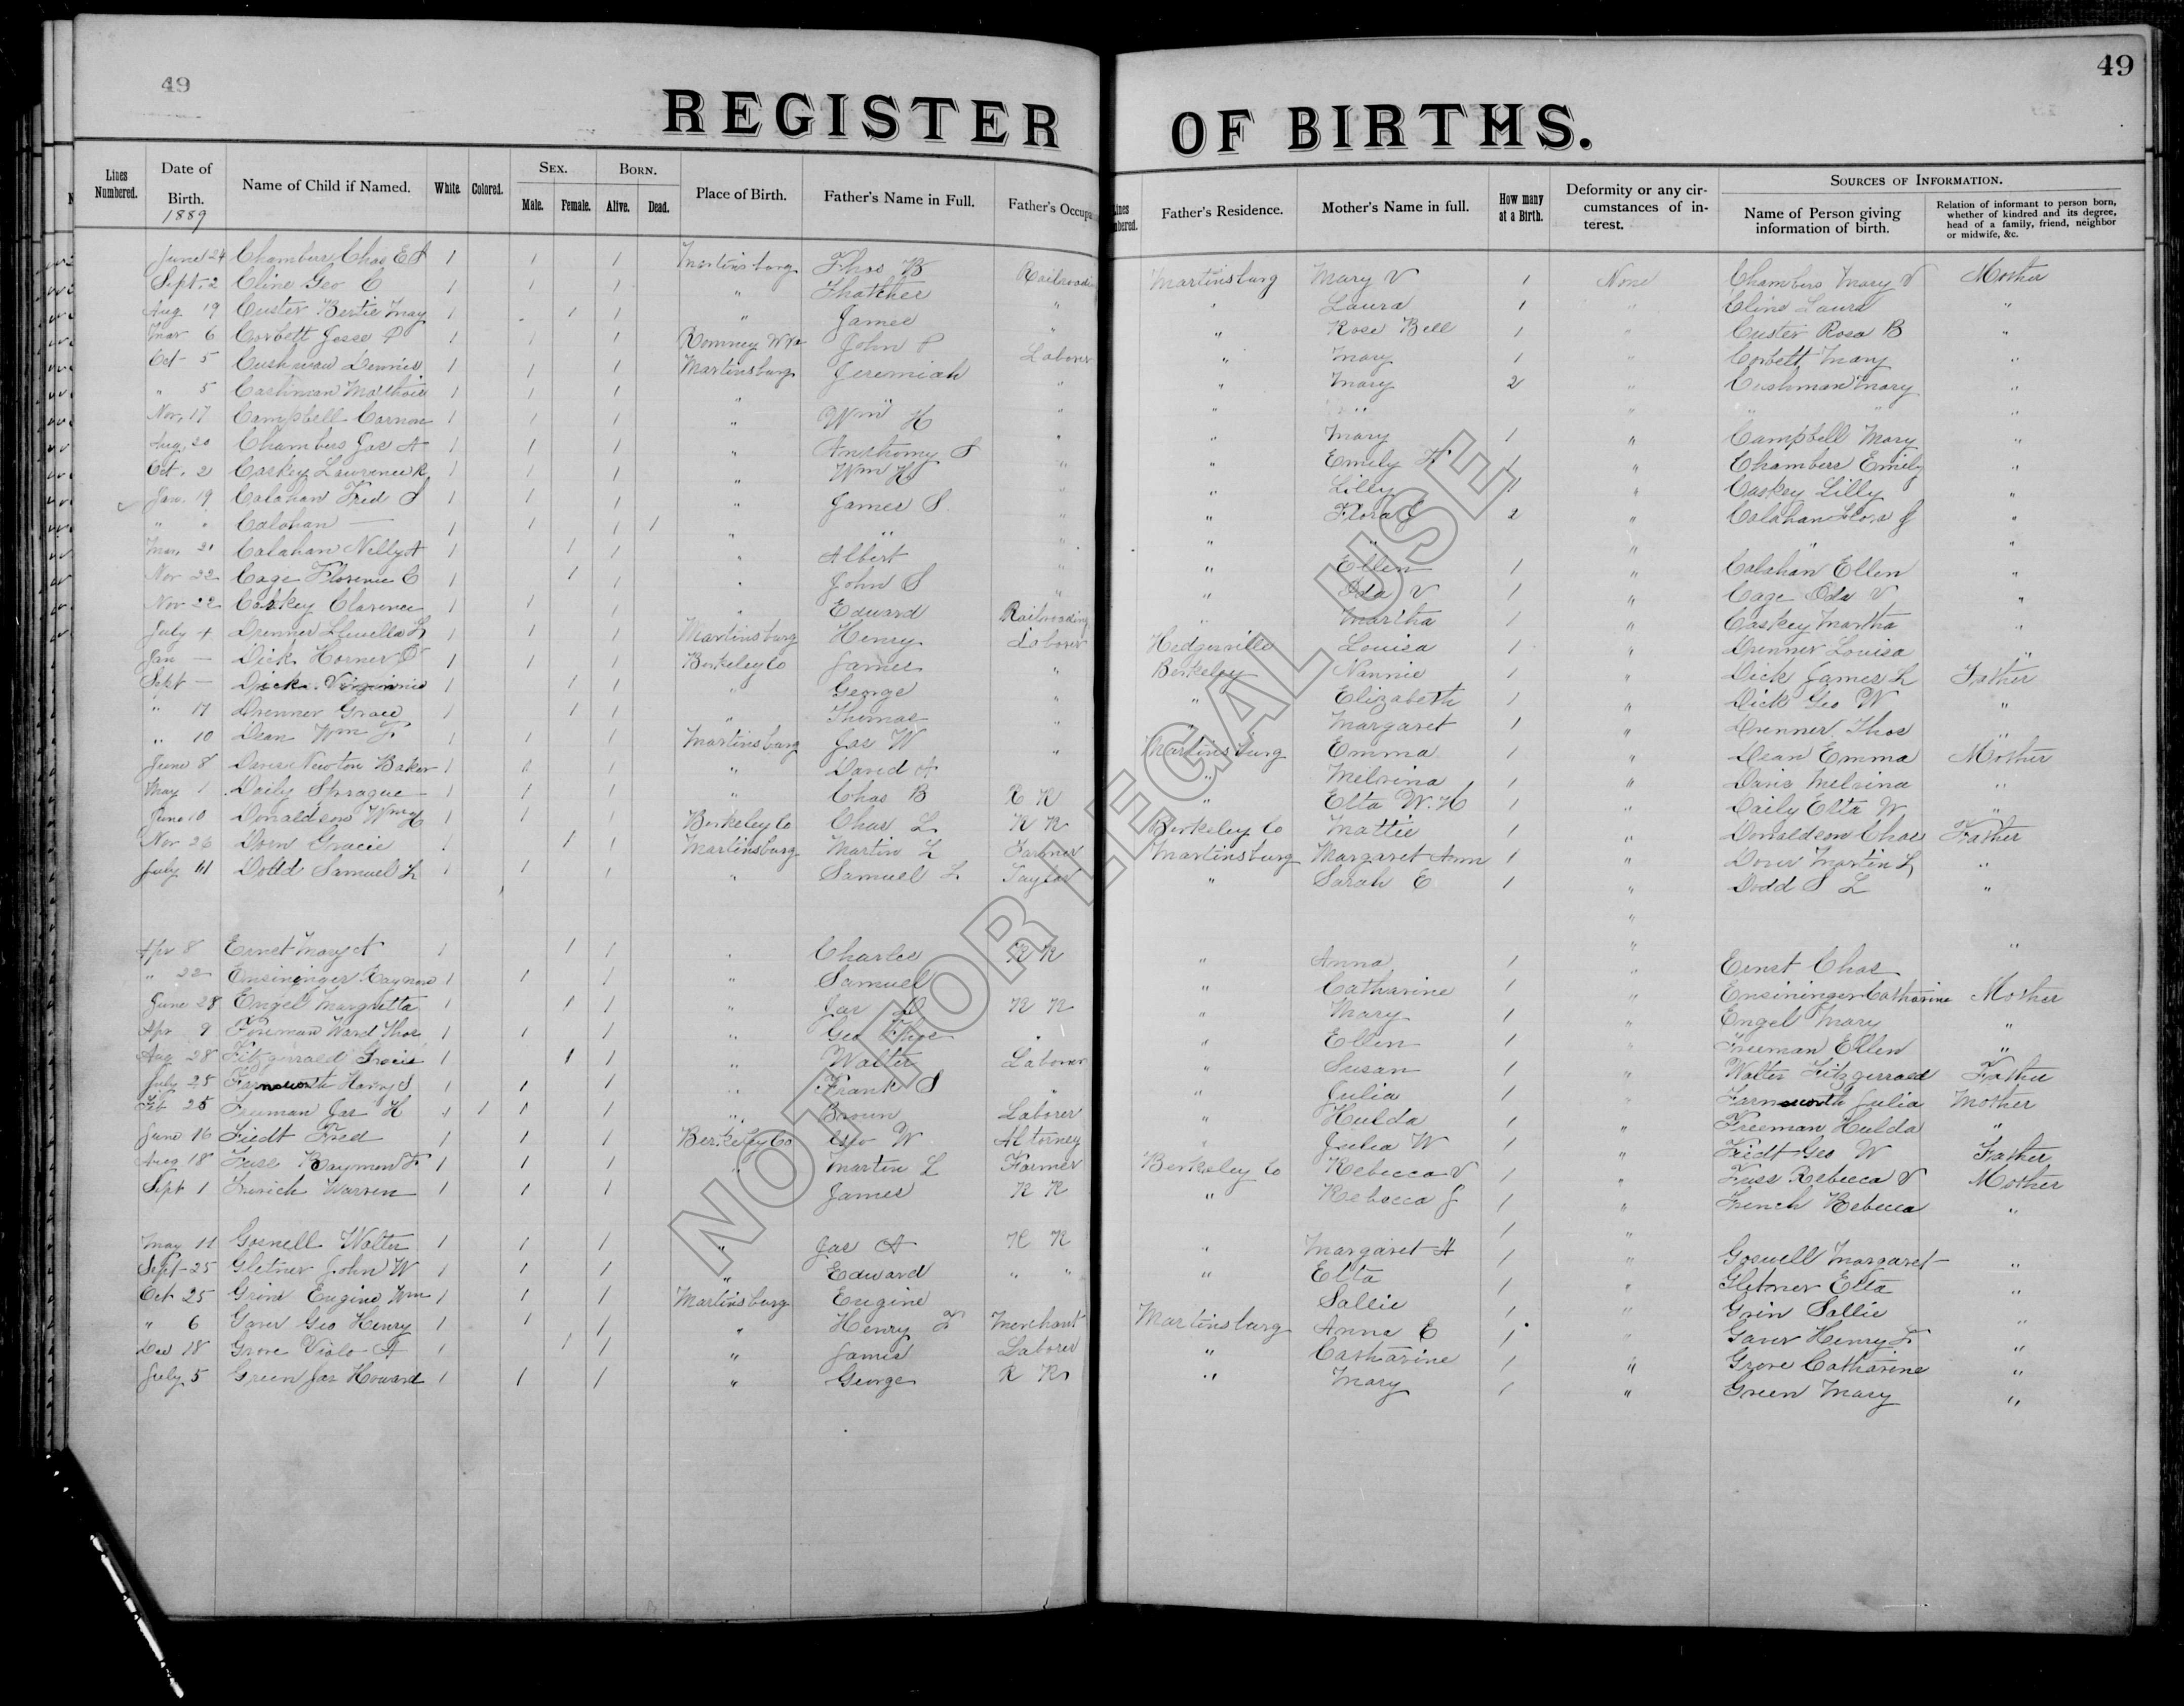 49
49
REGISTER OF BIRTHS.
Lines Numbered. Date of Birth. 1889 Name of Child if Named. White. Colored. Sex. Male. Female. Born. Alive. Dead. Place of Birth. Father's Name in Full. Father's Occupa
Lines Numbered. Father's Residence. Mother's Name in full. How many at a Birth. Deformity or any circumstances of interest. Sources of Information. Name of Person giving information of birth. Relation of informant to person born, whether of kindred and its degree, head of a family, friend, neighbor or midwife, &c.
June 24 Chambers Chas E 1 1 1 Martinsburg Thos B Railroading Martinsburg Mary V 1 None Chambers Mary V Mother
Sept. 2 Cline Geo C 1 1 1 " Thatcher " " Laura 1 " Cline Laura "
Aug 19 Custer Bertie May 1 1 1 " James " " Rose Bell 1 " Custer Rosa B "
Mar 6 Corbett Jesse P 1 1 1 Romney W Va John P Laborer " Mary 1 " Corbett Mary "
Oct 5 Cushman Dennis 1 1 1 Martinsburg Jeremiah " " Mary 2 " Cushman Mary "
" 5 Cashman 1 1 1 " " " " " " " " "
Nov. 17 Campbell 1 1 1 " Wm H " " Mary 1 " Campbell Mary "
Aug. 20 Chambers Jas A 1 1 1 " Anthony S " " Emily H 1 " Chambers Emily "
Oct. 2 Caskey Lawrence R 1 1 1 " Wm H " " Lilly 1 " Caskey Lilly "
Jan. 19 Calahan Fred S 1 1 1 " James S " " Flora J 2 " Calahan Flora J "
" " Calahan — 1 1 1 1 " " " " " " "
Mar. 21 Calahan Nelly A 1 1 1 " Albert " " Ellen 1 " Calahan Ellen "
Nov 22 Cage Florence C 1 1 1 " John S " " Oda V 1 " Cage Oda V "
Nov 22 Caskey Clarence 1 1 1 " Edward Railroading " Martha 1 " Caskey Martha "
July 4 Drenner Lluella L 1 1 1 Martinsburg Henry Laborer Hedgesville Louisa 1 " Drenner Louisa "
Jan — Dick Horner D 1 1 1 Berkeley Co James " Berkeley Nannie 1 " Dick James L Father
Sept — Dick Virginnie 1 1 1 " George " " Elizabeth 1 " Dick Geo W "
" 17 Drenner Grace 1 1 1 " Thomas " " Margaret 1 " Drenner Thos "
" 10 Dean Wm 1 1 1 Martinsburg Jas W " Martinsburg Emma 1 " Dean Emma Mother
June 8 Davis Newton Baker 1 1 1 " David A " Melvina 1 " Davis Melvina "
May 1 Daily Sprague 1 1 1 " Chas B R R " Etta W. H 1 " Daily Etta W "
June 10 Donaldson Wm H 1 1 1 Berkeley Co Chas L R R Berkeley Co Mattie 1 " Donaldson Chas Father
Nov 26 Gracie 1 1 1 Martinsburg Martin L Farmer Martinsburg Margaret Ann 1 " Martin L "
July 11 Dodd Samuel L 1 1 1 " Samuel L Taylor " Sarah E 1 " Dodd S L "
Apr 8 Ernst Mary A 1 1 1 " Charles R R " Anna 1 " Ernst Chas "
" 22 Ensininger Raymond 1 1 1 " Samuel " Catharine 1 " Ensininger Catharine Mother
June 28 Engel Margretta 1 1 1 " Jas D R R " Mary 1 " Engel Mary "
Apr 9 Foreman Ward Thos 1 1 1 " Geo Thos " " Ellen 1 " Freeman Ellen "
Aug 28 Fitzgerrald Gracie 1 1 1 " Walter Laborer " Susan 1 " Walter Fitzgerrald Father
July 25 Farnsworth Harry S 1 1 1 " Frank S " " Julia 1 " Farnsworth Julia Mother
Feb 25 Freeman Jas H 1 1 1 1 " Brown Laborer " Hulda 1 " Freeman Hulda "
June 16 Fiedt Fred 1 1 1 Berkeley Co Geo W Attorney " Julia W 1 " Fiedt Geo W Father
Aug 18 Fuss Raymond F 1 1 1 " Martin L Farmer Berkeley Co Rebecca V 1 " Fuss Rebecca V Mother
Sept 1 French Warren 1 1 1 " James R R " Rebecca J 1 " French Rebecca "
May 11 Gosnell Walter 1 1 1 " Jas A R R " Margaret A 1 " Goswell Margaret "
Sept 25 Gletner John W 1 1 1 " Edward " " " Etta 1 " Gletner Etta "
Oct 25 Grine Eugine Wm 1 1 1 Martinsburg Eugine Sallie 1 " Grin Sallie "
" 6 Gaver Geo Henry 1 1 1 " Henry F Merchant Martinsburg Anna E 1 " Gaver Henry F "
Dec 18 Grove Viola A 1 1 1 " James Laborer " Catharine 1 " Grove Catharine "
July 5 Green Jas Howard 1 1 1 " George R R " Mary 1 " Green Mary "
NOT FOR LEGAL USE